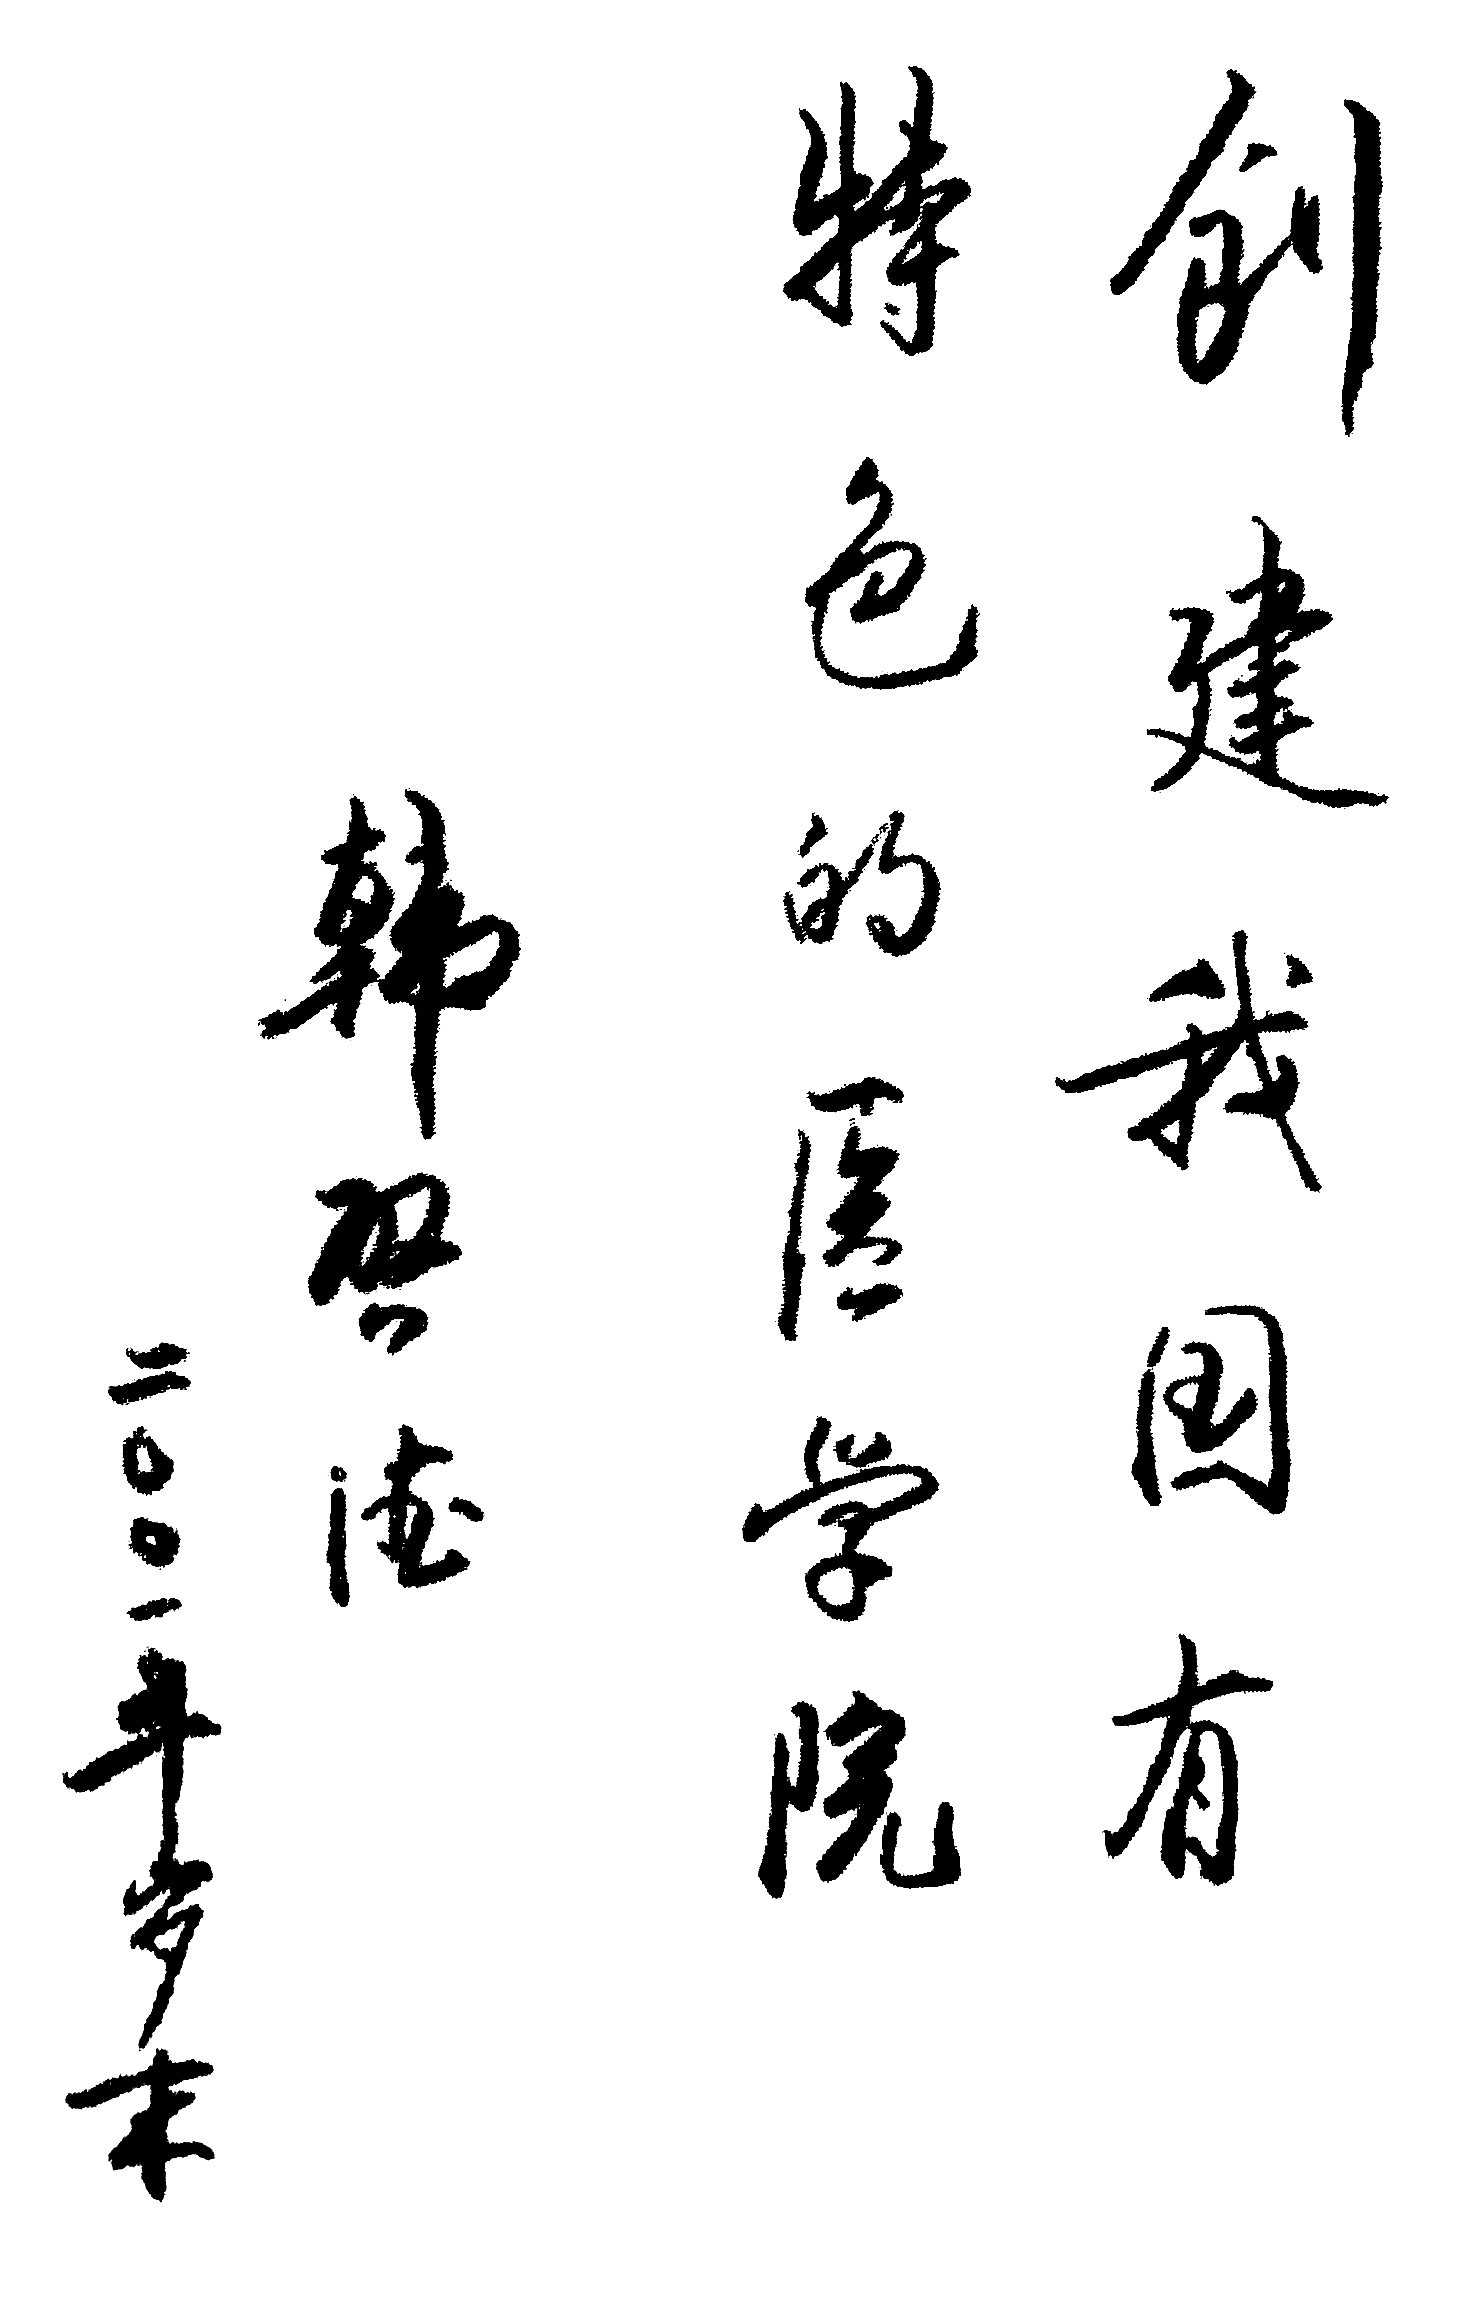 创建我国有
特色的医学院
韩启德
二〇〇一年岁末